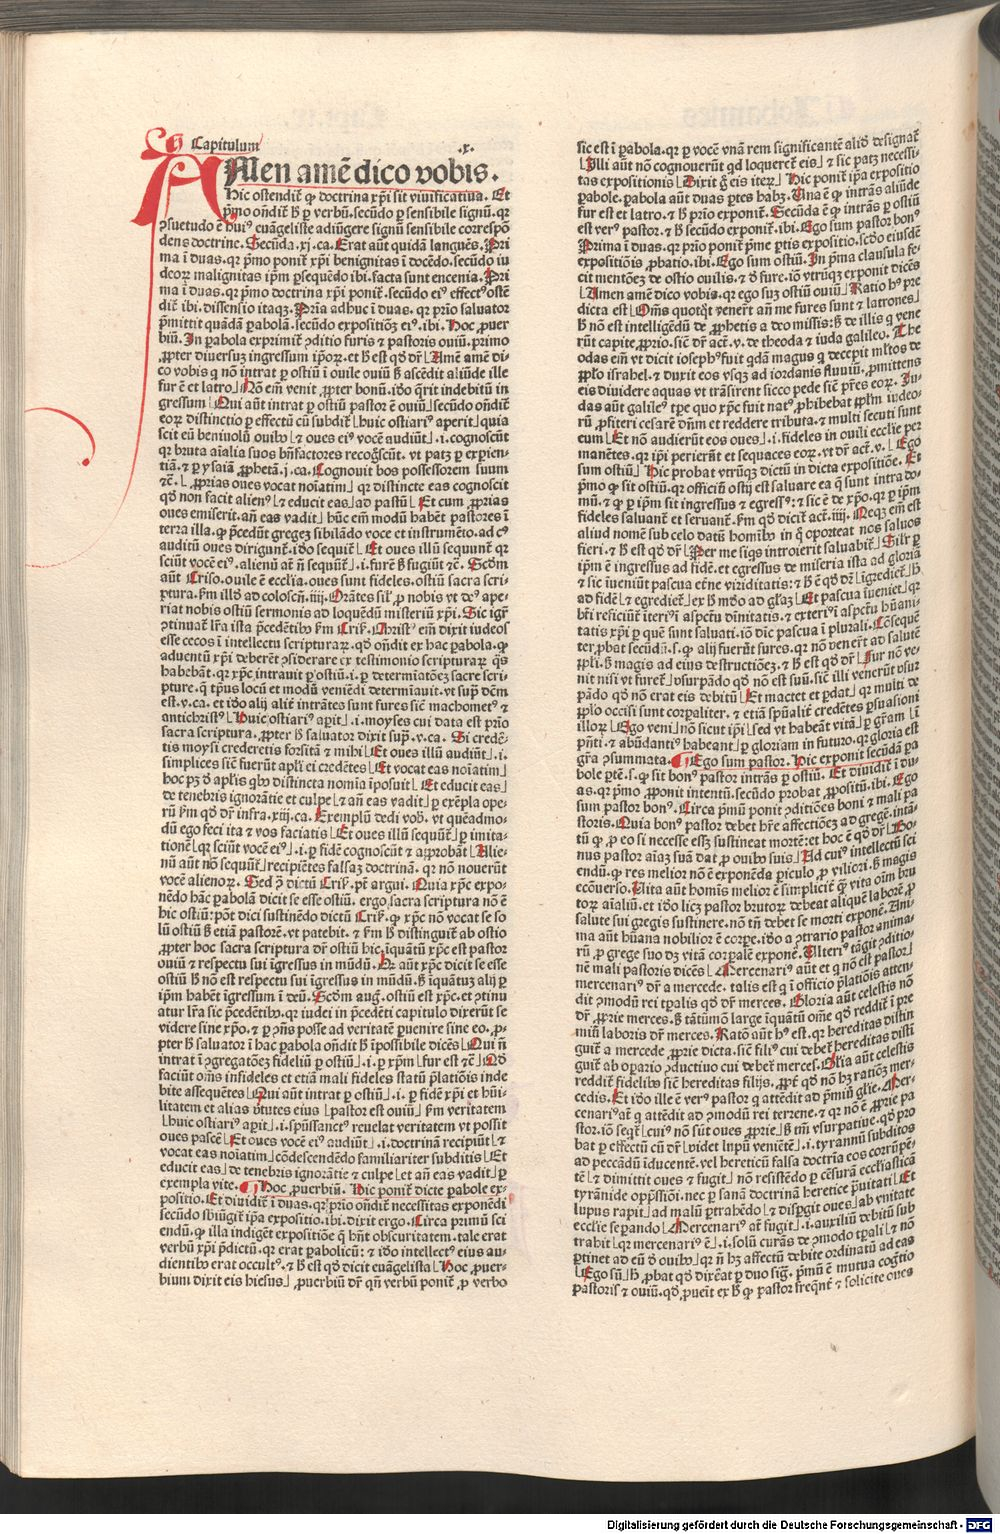 Capitulum .x.
AMen amē dico vobis.
Hic ostendit̄ ꝙ doctrina xp̄i sit viuificatiua. Et
p̄mo oñdit̄ ꝧ ꝑ verbū. secūdo ꝑ sensibile signū. qꝛ
ꝯsuetudo ē huiꝰ euāgeliste adiūgere signū sensibile correspō
dens doctrine. Secūda .xj. ca. Erat aūt quidā languēs. Pri
ma ī duas. qꝛ pͥmo ponit̄ xp̄i benignitas ī docēdo. secūdo iu
deoꝝ malignitas ip̄m ꝑsequēdo ibi. facta sunt encenia. Pri
ma ī duas. qꝛ pͥmo doctrina xp̄i ponit̄. secūdo eiꝰ effectꝰ ostē
dit̄ ibi. dissensio itaqꝫ. Pria adhuc ī duas. qꝛ prio saluator
p̄mittit quādā ꝑabolā. secūdo expositionē eiꝰ. ibi. Hoc ꝓuer
biū. In ꝑabola exprimit̄ ꝯditio furis ⁊ pastoris ouiū. primo
ꝓpter diuersuꝫ ingressum ip̄oꝝ. et ꝧ est qđ dr̄ Amē amē di
co vobis q nō intrat ꝑ ostiū ī ouile ouiū ꝫ ascēdit aliūde ille
fur ē et latro. Nō em̄ venit ꝓpter bonū. iđo q̄rit indebitū in
gressum Qui aūt intrat ꝑ ostiū pastor ē ouiū secūdo oñdit̄
eoꝝ distinctio ꝑ effectū cū subdit̄ huic ostiariꝰ aperit quia
scit eū beniuolū ouibꝰ ⁊ oues eiꝰ vocē audiūt .i. cognoscūt
qꝛ bruta aīalia suos bn̄factores recog̃scūt. vt patꝫ ꝑ exꝑien-
tiā. ⁊ ꝑ ysaiā ꝓphetā .j. ca. Cognouit bos possessorem suum
⁊c̄. ꝓprias oues vocat noīatim qꝛ distincte eas cognoscit
qđ non facit alienꝰ ⁊ educit eas ad pastū Et cum ꝓprias
oues emiserit. añ eas vadit hūc em̄ modū habēt pastores ī
terra illa. ꝙ p̄cedūt gregeꝫ sibilādo voce et instrumēto. ad cꝰ
auditū oues dirigunt̄. iđo sequit̄ Et oues illū sequunt̄ qꝛ
sciūt vocē eiꝰ. alienū at̄ ñ sequūt̄ .i. furē ꝫ fugiūt ⁊c̄. Scđm
aūt Criso. ouile ē ecclīa. oues sunt fideles. ostiū sacra scri-
ptura. ẜm illđ ad colosceñ. iiij. Orātes sil̄ ꝓ nobis vt deꝰ ape-
riat nobis ostiū sermonis ad loquēdū misteriū xp̄i. Sic igr̄
ꝯtinuat̄ lr̄a ista p̄cedētibꝰ ẜm Cris. Christꝰ em̄ dixit iudeos
esse cecos ī intellectu scripturaꝝ. qđ oñdit ex hac ꝑabola. ꝙ
aduentū xp̄i deberēt ꝯsiderare ex testimonio scripturaꝝ q̄s
habebāt. qꝛ xp̄c intrauit ꝑ ostiū .i. ꝑ determīatōeꝫ sacre scri-
pture. q̄ tp̄us locū et modū veniēdi determīauit. vt sup̄ dc̄m
est .v. ca. et iđo alij alit̄ intrātes sunt fures sic̄ machometꝰ ⁊
antichristꝰ Huic ostiariꝰ aꝑit .i. moyses cui data est prio
sacra scriptura. ꝓpter ꝧ saluator dixit sup̄ .v. ca. Si credē-
tis moysi crederetis forsitā ⁊ mihi Et oues illū audiūt .i.
simplices sic̄ fuerūt apl̄i ei credētes Et vocat eas noīatim
hoc pꝫ đ apl̄is qbꝰ distincta nomīa īposuit Et educit eas
de tenebris ignorātie et culpe ⁊ añ eas vadit ꝑ exēpla ope-
rū ẜm qđ dr̄ infra .xiij. ca. Exemplū dedi vob̄. vt queadmo-
dū ego feci ita ⁊ vos faciatis Et oues illū sequūt̄ ꝑ imita-
tionē qꝛ sciūt vocē eiꝰ .i. ꝑ fidē cognoscūt ⁊ aꝓbāt Alie-
nū aūt nō sequūt̄ recipiētes falsaꝫ doctrinā. qꝛ nō nouerūt
vocē alienoꝝ. Sed ꝯ dictū Cris. p̄t argui. Quia xp̄c expo-
nēdo hāc ꝑabolā dicit se esse ostiū. ergo sacra scriptura nō ē
hic ostiū: pōt dici sustinēdo dictū Cris. ꝙ xp̄c nō vocat se so
lū ostiū ꝫ etiā pastorē. vt patebit. ⁊ ẜm ꝧ distinguit̄ ab ostio
ꝓpter hoc sacra scriptura dr̄ ostiū hic. īquātū xp̄c est pastor
ouiū ⁊ respectu sui īgressus in mūdū. Or aūt xp̄c dicit se esse
ostiū ꝧ nō est respectu sui īgressus in mūdū. ꝫ īquātuꝫ alij ꝑ
ip̄m habēt īgressum ī deū. Scđm aug̃. ostiū est xp̄c. et ꝯtinu
atur lr̄a sic p̄cedētibꝰ. qꝛ iudei in p̄cedēti capitulo dixerūt se
videre sine xp̄o. ⁊ ꝑ ꝯñs posse ad veritatē ꝑuenire sine eo. ꝓ-
pter ꝧ saluator ī hac ꝑabola oñdit ꝧ īpossibile dicēs Qui ñ
intrat ī ꝯgregatōeꝫ fideliū ꝑ ostiū .i. ꝑ xp̄m fur est ⁊c̄ Qđ
faciūt om̄s infideles et etiā mali fideles statū p̄latiōis inde
bite assequētes Qui aūt intrat ꝑ ostiū .i. ꝑ fidē xp̄i et hūi-
litatem et alias v̄tutes eius pastor est ouiū ẜm veritatem
huic ostiariꝰ aꝑit .i. spūssanctꝰ reuelat veritatem vt possit
oues pascē Et oues vocē eiꝰ audiūt .i. doctrinā recipiūt ⁊
vocat eas noīatim cōdescendēdo familiariter subditis Et
educit eas de tenebris ignorātie ⁊ culpe et añ eas vadit ꝑ
exempla vite. Hoc ꝓuerbiū. Hic ponit̄ dicte ꝑabole ex-
positio. Et diuidit̄ ī duas. qꝛ prio oñdit̄ necessitas exponēdi
secūdo sbiūgit̄ ip̄a expositio. ibi. dixit ergo. Circa primū sci
endū. ꝙ illa indigēt expositiōe q̄ hñt obscuritatem. tale erat
verbū xp̄i p̄dictū. qꝛ erat ꝑabolicū: ⁊ iđo intellectꝰ eius au-
dientibꝰ erat occultꝰ. ⁊ ꝧ est qđ dicit euāgelista Hoc ꝓuer-
bium dixit eis hiesus ꝓuerbiū dr̄ qn̄ verbū ponit̄ ꝓ verbo
sic est ī ꝑabola. qꝛ ꝑ vocē vnā rem significantē aliđ designat̄
Illi aūt nō cognouerūt qđ loqueret̄ eis ⁊ sic patꝫ necessi-
tas expositionis Dixit g̊ eis iteꝝ Hic ponit̄ ip̄a expositio
ꝑabole. ꝑabola aūt duas ꝑtes habꝫ. Una ē ꝙ intrās aliūde
fur est et latro. ⁊ ꝧ prio exponit̄. Secūda ē ꝙ intrās ꝑ ostiū
est verꝰ pastor. ⁊ ꝧ secūdo exponit̄. ibi. Ego sum pastor bonꝰ
Prima ī duas. qꝛ prio ponit̄ p̄me ꝑtis expositio. scđo eiusdē
expositiōis ꝓbatio. ibi. Ego sum ostiū. In p̄ma clausula fe-
cit mentōeꝫ de ostio ouilis. ⁊ đ fure. iō vtrūqꝫ exponit dicēs
Amen amē dico vobis. qꝛ ego suꝫ ostiū ouiū Ratio hꝰ pre
dicta est Om̄s quotqͣt venert̄ añ me fures sunt ⁊ latrones
ꝧ nō est intelligēdū de ꝓphetis a deo missis: ꝫ de illis q vene
rūt capite ꝓprio. sic̄ dr̄ act̄. v. de theoda ⁊ iuda galileo. The
odas em̄ vt dicit iosephꝰ fuit qdā magus q decepit ml̄tos de
ꝓpl̄o israhel. ⁊ duxit eos vsqꝫ ad iordanis fluuiū. ꝓmittens
eis diuidere aquas vt trāsirent sicco pede sic̄ pr̄es eoꝝ. Iu-
das aūt galileꝰ tp̄e quo xp̄c fuit natꝰ ꝓhibebat ꝓpl̄m iudeo-
rū ꝓfiteri cesarē dn̄m et reddere tributa. ⁊ multi secuti sunt
eum Et nō audierūt eos oues .i. fideles in ouili ecclīe per
manētes. qꝛ ip̄i perierūt et sequaces eoꝝ. vt dr̄ act̄. v. Ego
sum ostiū Hic probat vtrūqꝫ dictū in dicta expositiōe. Et
p̄mo ꝙ sit ostiū. qꝛ officiū ostij est saluare ea q̄ sunt intra do-
mū. ⁊ ꝙ ꝑ ip̄m sit ingressus ⁊ egressꝰ: ⁊ sic ē de xp̄o. qꝛ ꝑ ip̄m
fideles saluant̄ et seruant̄. ẜm qđ dicit̄ act̄. iiij. Neqꝫ em̄ est
aliud nomē sub celo datū hom̄ibꝰ in q̊ oporteat nos saluos
fieri. ⁊ ꝧ est qđ dr̄ Per me siqs introierit saluabit̄. Sil̄r ꝑ
ip̄m ē ingressus ad fidē. et egressus de miseria ista ad gloriā
⁊ sic īueniūt pascua et̄ne viriditatis: ⁊ ꝧ ē qđ dr̄ īgrediet̄ .h̄.
ad fidē ⁊ egrediet̄ ex ꝧ mđo ad gl̄aꝫ Et pascua īueniet qꝛ
bt̄i reficiūt̄ īteriꝰ ī aspectu dīnitatis. ⁊ exteriꝰ ī aspectu hūani-
tatis xp̄i ꝑ quē sunt saluati. iō dīc pascua ī plurali. Cōsequē
ter ꝓbat secūdā .s. ꝙ alij fuerūt fures. qꝛ nō venerūt ad salutē
ꝓpl̄i. ꝫ magis ad eius destructiōeꝫ. ⁊ ꝧ est qđ dr̄ Fur nō ve-
nit nisi vt furet̄ vsurpādo qđ nō est suū. sic̄ illi venerūt vsur
pādo qđ nō erat eis debitū Et mactet et ꝑdat qꝛ multi de
ꝓpl̄o occisi sunt corꝑaliter. ⁊ etiā spūalit̄ credētes ꝑsuasioni
illoꝝ Ego veni nō sicut ip̄i sed vt habeāt vitā ꝑ gr̄am ī
pñti. ⁊ abūdantiꝰ habeant ꝑ gloriam in futuro. qꝛ gloria est
gr̄a ꝯsummata. Ego sum pastor. Hic exponit secūdā ꝑa
bole ꝑtē .s. ꝙ sit bonꝰ pastor intrās ꝑ ostiū. Et diuidit̄ ī du-
as. qꝛ p̄mo ꝓponit intentū. secūdo probat ꝓpositū. ibi. Ego
sum pastor bonꝰ. Circa p̄mū ponit ꝯditiōes boni ⁊ mali pa
storis. Quia bonꝰ pastor debet hr̄e affectiōeꝫ ad gregē. intā-
tū ꝙ ꝓ eo si necesse essꝫ sustineat mortē: et hoc ē qđ dr̄ Bo-
nus pastor aīaꝫ suā dat ꝓ ouibꝰ suis Ad cuiꝰ intellectū sci
endū. ꝙ res melior nō ē exponēda ꝑiculo ꝓ viliori. ꝫ magis
ecōuerso. Uita aūt homīs melior ē simplicit̄ q̄ vita oīm bru
toꝝ aīaliū. et iđo licꝫ pastor brutoꝝ debeat aliquē laborē ꝓ
salute sui gregis sustinere. nō tñ debet se morti exponē. Ani-
ma aūt hūana nobilior ē corꝑe. iđo a ꝯtrario pastor anima-
rū ꝓ grege suo dꝫ vitā corꝑalē exponē. Ulteriꝰ tāgit ꝯditio-
nē mali pastoris dicēs Mercenariꝰ aūt et q nō est pastor
mercenariꝰ dr̄ a mercede. talis est q ī officio p̄latiōis atten-
dit ꝯmodū rei tꝑalis qđ dr̄ merces. Gloria aūt celestis nō
dr̄ ꝓprie merces. ꝫ tātūmō large īquātū om̄e qđ reddit̄ ī pre
miū laboris dr̄ merces. Ratō aūt hꝰ est. qꝛ hereditas distin
guit̄ a mercede ꝓprie dicta. sic̄ filiꝰ cui debet̄ hereditas distī
guit̄ ab oꝑario ꝯductiuo cui debet̄ merces. Gl̄ia aūt celestis
reddit̄ fidelibꝰ sic̄ hereditas filijs. ꝓpt̄ qđ nō hꝫ ratiōeꝫ mer-
cedis. Et iđo ille ē verꝰ pastor q attēdit ad p̄miū gl̄ie. Mer-
cenariꝰ at̄ q attēdit ad ꝯmodū rei terrene. ⁊ qꝛ nō ē ꝓprie pa
stor. iō seqt̄ cuiꝰ nō sūt oues ꝓprie ꝫ tm̄ vsurpatiue. qđ pro
bat ꝑ effectū cū dr̄ videt lupū veniētē .i. tyrannū subditos
ad peccādū īducentē. vel hereticū falsa doctrīa eos corrūpē-
tē ⁊ dimittit oues ⁊ fugit nō resistēdo ꝑ cēsurā ecclīasticā
tyrānide opp̄ssiōi. nec ꝑ sanā doctrinā heretice p̄uitati Et
lupus rapit ad malū ꝑtrahēdo ⁊ disꝑgit oues ab vnitate
ecclīe sepando Mercenariꝰ at̄ fugit .i. auxiliū debitū sub
trahit qꝛ mercenariꝰ ē .i. solū curās de ꝯmodo tꝑali ⁊ nō
ꝑtinet ad eū đ ouibꝰ qꝛ ñ hꝫ affectū debite ordinatū ad eas
Ego sū ꝧ ꝓbat qđ dixēat ꝑ duo sig̃. p̄mū ē mutua cog̃tio
pastoris ⁊ ouiū. qđ ꝓueit̄ ex ꝧ ꝙ pastor freq̄nt̄ ⁊ solicite oues
Digitalisierung gefördert durch die Deutsche Forschungsgemeinschaft - DFG